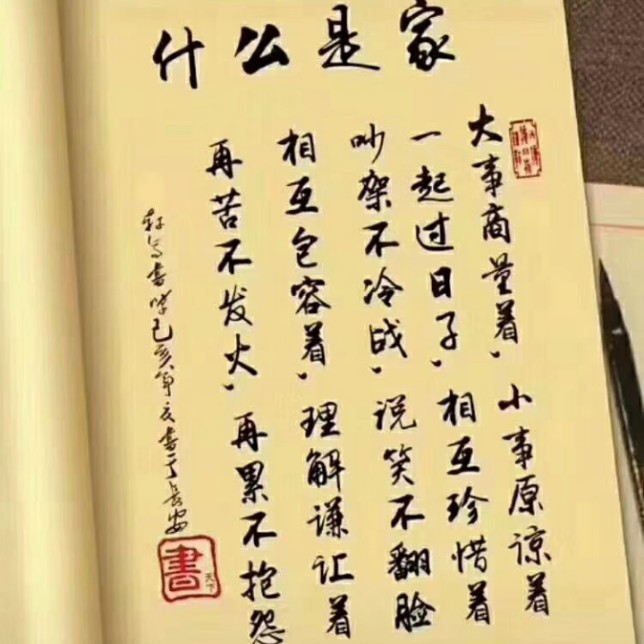 什么是家
大事商量着，小事原谅着
一起过日子，相互珍惜着
吵架不冷战，说笑不翻脸
相互包容着，理解谦让着
再苦不发火，再累不抱怨
书于长安
書
天下